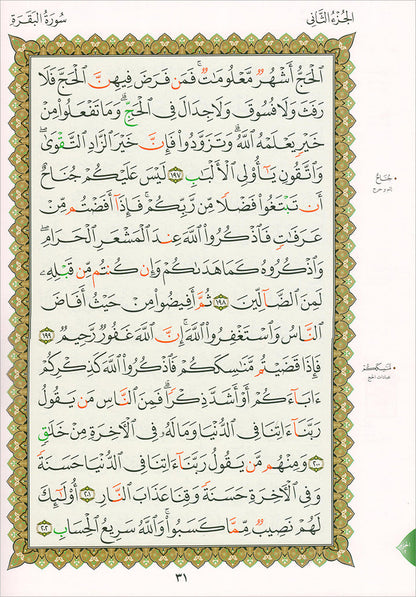 الجُزْءُ الثَّانِي
سُورَةُ البَقَرَةِ
ٱلْحَجُّ أَشْهُرٌ مَّعْلُومَٰتٌ ۚ فَمَن فَرَضَ فِيهِنَّ ٱلْحَجَّ فَلَا
رَفَثَ وَلَا فُسُوقَ وَلَا جِدَالَ فِى ٱلْحَجِّ ۗ وَمَا تَفْعَلُوا۟ مِنْ
خَيْرٍ يَعْلَمْهُ ٱللَّهُ ۗ وَتَزَوَّدُوا۟ فَإِنَّ خَيْرَ ٱلزَّادِ ٱلتَّقْوَىٰ ۚ
وَٱتَّقُونِ يَٰٓأُو۟لِى ٱلْأَلْبَٰبِ ١٩٧ لَيْسَ عَلَيْكُمْ جُنَاحٌ
أَن تَبْتَغُوا۟ فَضْلًا مِّن رَّبِّكُمْ ۚ فَإِذَآ أَفَضْتُم مِّنْ
عَرَفَٰتٍ فَٱذْكُرُوا۟ ٱللَّهَ عِندَ ٱلْمَشْعَرِ ٱلْحَرَامِ ۖ
وَٱذْكُرُوهُ كَمَا هَدَىٰكُمْ وَإِن كُنتُم مِّن قَبْلِهِۦ
لَمِنَ ٱلضَّآلِّينَ ١٩٨ ثُمَّ أَفِيضُوا۟ مِنْ حَيْثُ أَفَاضَ
ٱلنَّاسُ وَٱسْتَغْفِرُوا۟ ٱللَّهَ ۚ إِنَّ ٱللَّهَ غَفُورٌ رَّحِيمٌ ١٩٩
فَإِذَا قَضَيْتُم مَّنَٰسِكَكُمْ فَٱذْكُرُوا۟ ٱللَّهَ كَذِكْرِكُمْ
ءَابَآءَكُمْ أَوْ أَشَدَّ ذِكْرًا ۗ فَمِنَ ٱلنَّاسِ مَن يَقُولُ
رَبَّنَآ ءَاتِنَا فِى ٱلدُّنْيَا وَمَا لَهُۥ فِى ٱلْءَاخِرَةِ مِنْ خَلَٰقٍ
٢٠٠ وَمِنْهُم مَّن يَقُولُ رَبَّنَآ ءَاتِنَا فِى ٱلدُّنْيَا حَسَنَةً
وَفِى ٱلْءَاخِرَةِ حَسَنَةً وَقِنَا عَذَابَ ٱلنَّارِ ٢٠١ أُو۟لَٰٓئِكَ
لَهُمْ نَصِيبٌ مِّمَّا كَسَبُوا۟ ۚ وَٱللَّهُ سَرِيعُ ٱلْحِسَابِ ٢٠٢
• جُنَاحٌ
إثم و حرج
• مَّنَٰسِكَكُمْ
عبادات الحج
٣١